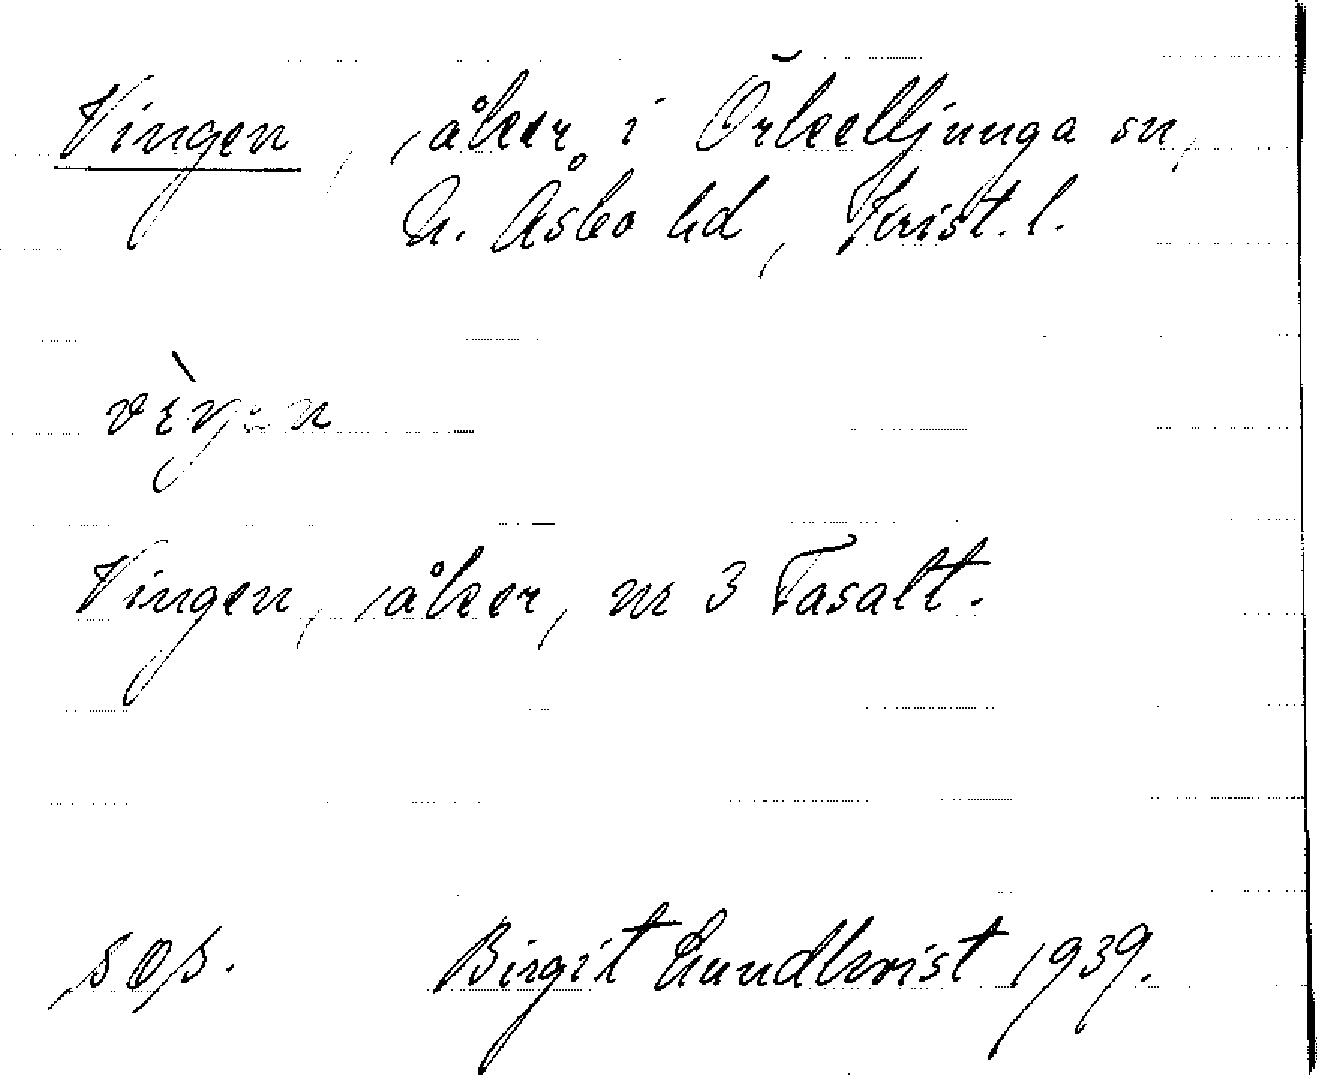 Vingen, åker i Örkelljunga sn,
N. Åsbo hd, Krist. l.
Vingen, åker, nr 3 Tasalt.
Birgit Lundkvist 1939.